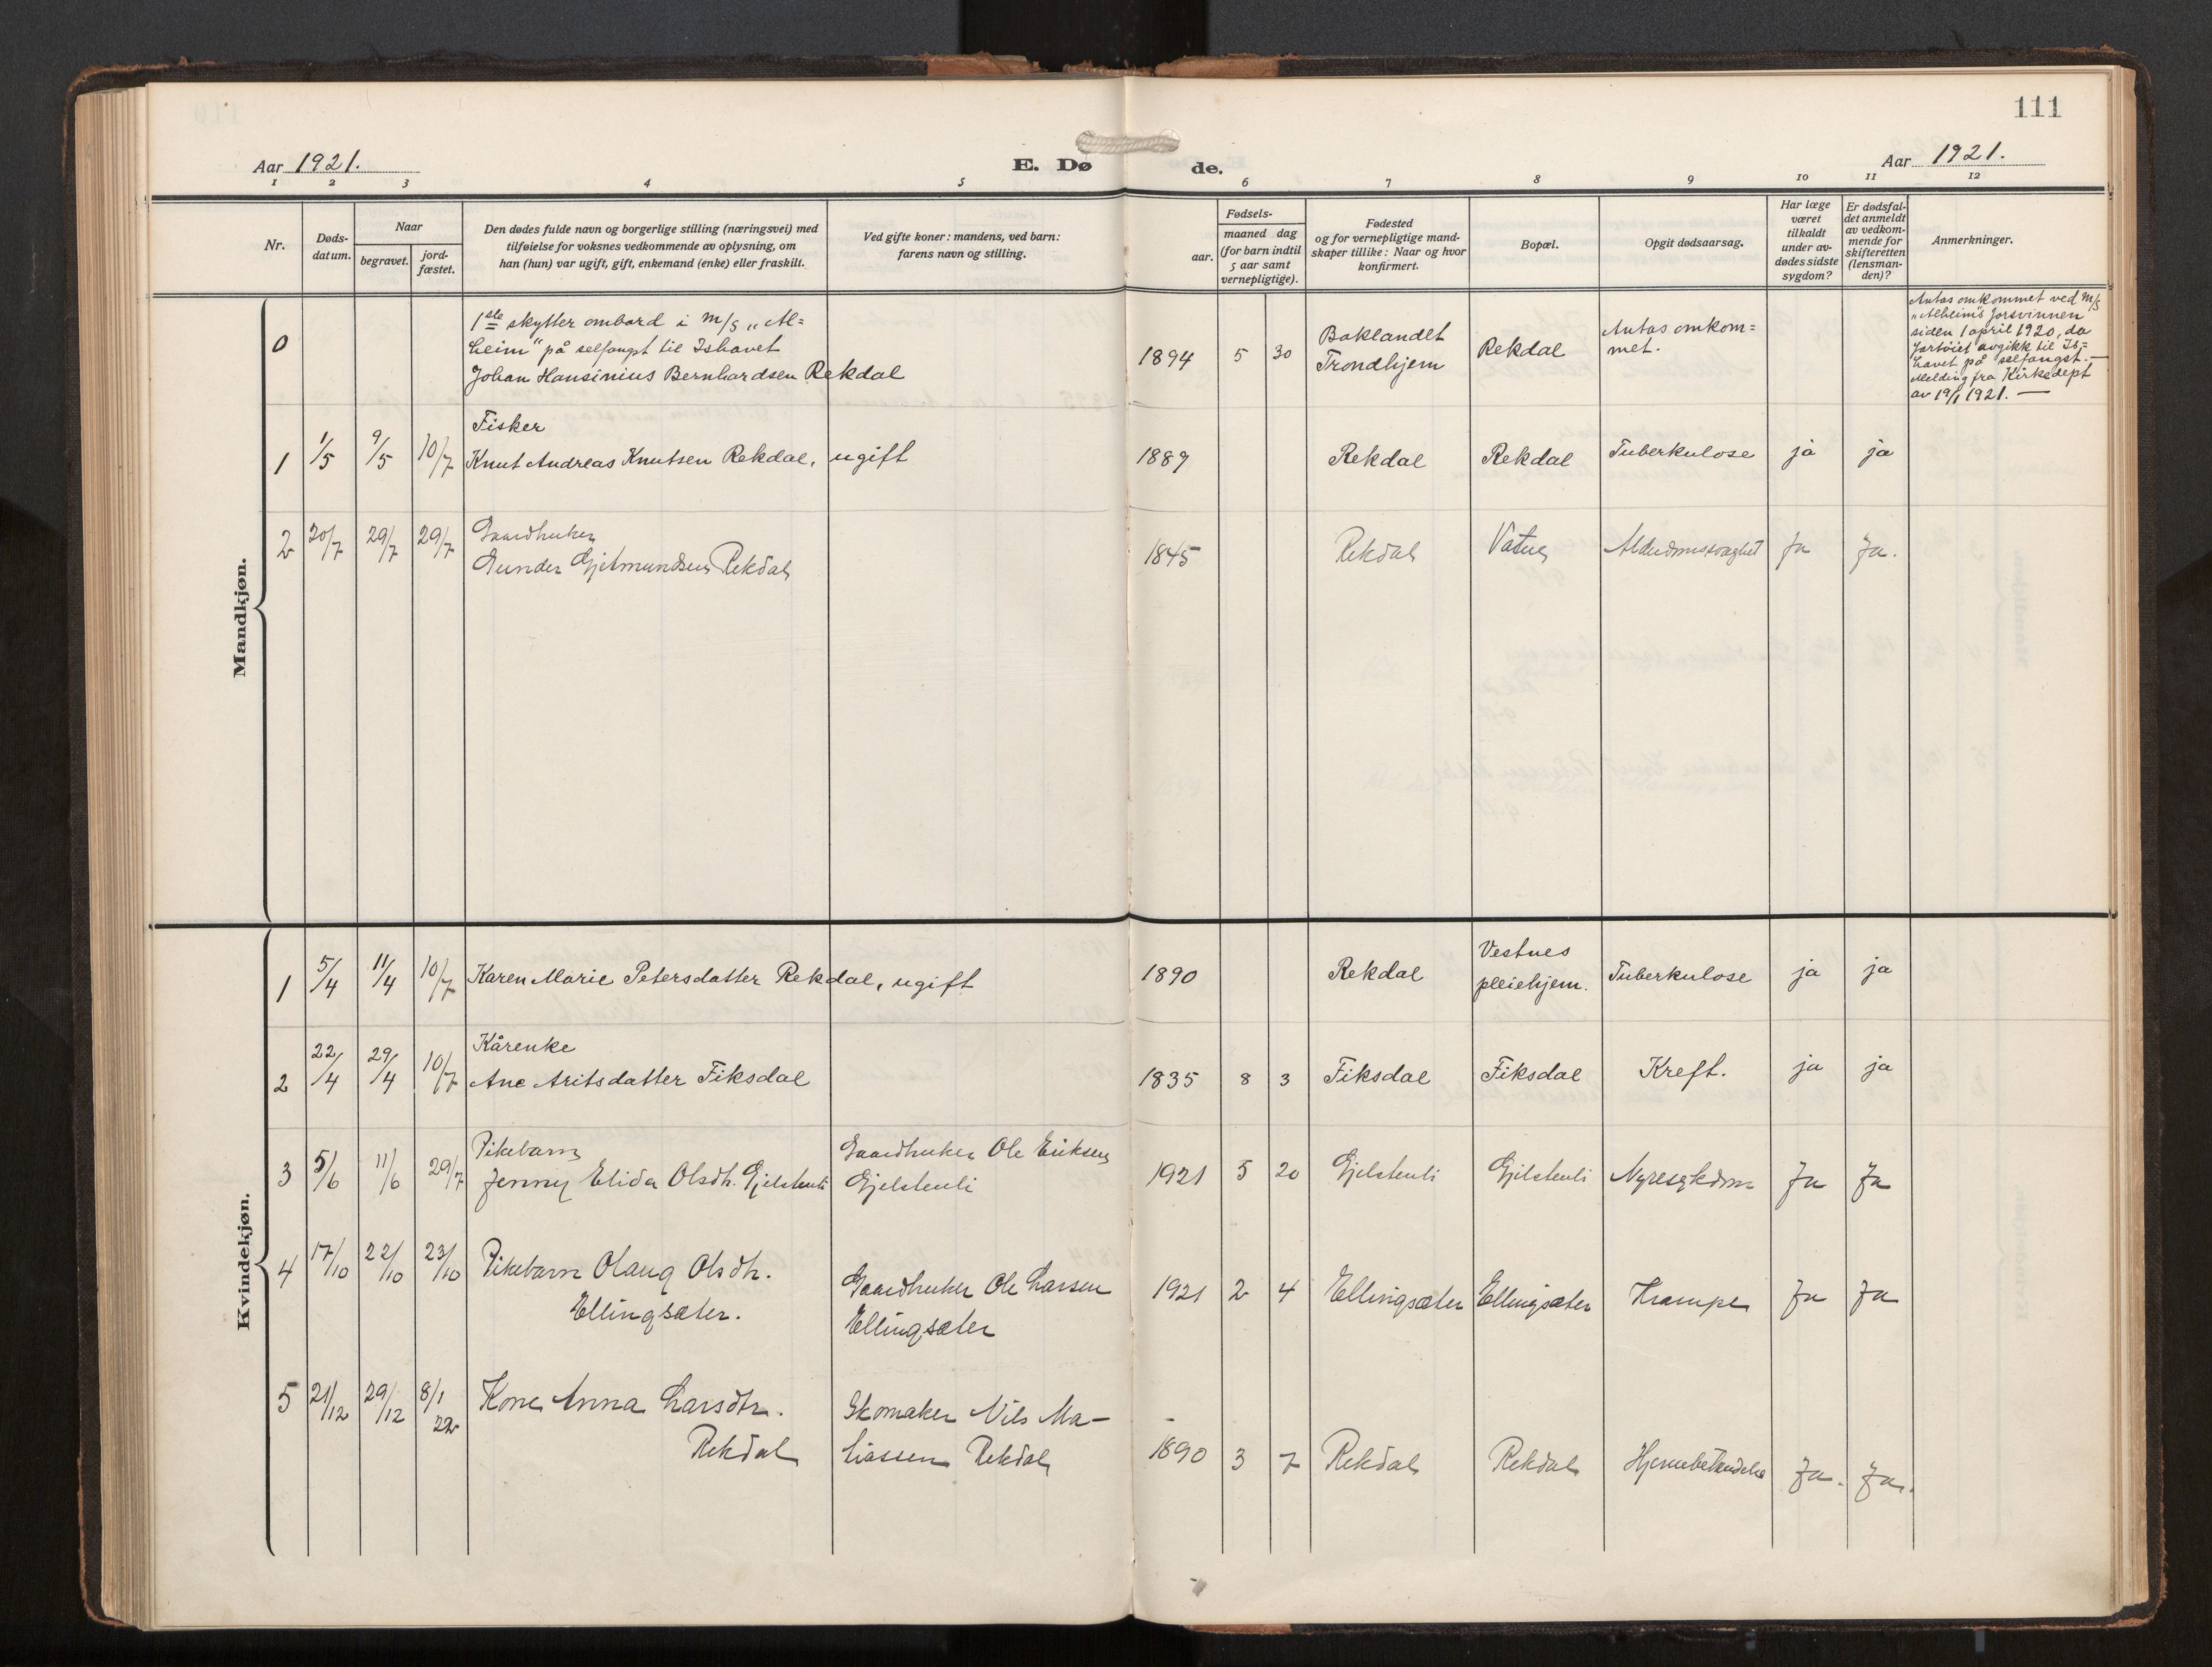 111
Aar 1921.
E. Døde.
Aar 1921.
1 2 3 4 5 6 7 8 9 10 11 12
Nr.
Døds-
datum.
Naar
begravet.
jord-
fæstet.
Den dødes fulde navn og borgerlige stilling (næringsvei) med
tilføielse for voksnes vedkommende av oplysning, om
han (hun) var ugift, gift, enkemand (enke) eller fraskilt.
Ved gifte koner: mandens, ved barn:
farens navn og stilling.
Fødsels-
aar.
maaned dag
(for barn indtil
5 aar samt
vernepligtige).
Fødested
og for vernepligtige mand-
skaper tillike: Naar og hvor
konfirmert.
Bopæl.
Opgit dødsaarsag.
Har læge
været
tilkaldt
under av-
dødes sidste
sygdom?
Er dødsfal-
det anmeldt
av vedkom-
mende for
skifteretten
(lensman-
den)?
Anmerkninger.
Mandkjøn.
0
1ste skytter ombord i m/s „Al-
heim" på selfangst til Ishavet
Johan Hansinius Bernhardsen Rekdal
1894 5 30
Baklandet
Trondhjem
Rekdal
Antas omkom=
met.
Antas omkommet ved m/s
„Alheim's forsvinnen
siden 1 april 1920, da
fartöiet avgikk til Is-
havet på selfangst. —
Melding fra Kirkedept
av 19/1 1921. —
Fisker
1 1/5 9/5 10/7 Knut Andreas Knutsen Rekdal, ugift 1889 Rekdal Rekdal Tuberkulose ja ja
Gaardbruker
2 20/7 29/7 29/7 Gunder Gjetmundsen Rekdal 1845 Rekdal Vatne Alderdomssvaghet Ja Ja.
Kvindekjøn.
1 5/4 11/4 10/7 Karen Marie Petersdatter Rekdal, ugift 1890 Rekdal
Vestnes
pleiehjem.
Tuberkulose ja ja
Kårenke
2 22/4 29/4 10/7 Ane Aritsdatter Fiksdal 1835 8 3 Fiksdal Fiksdal Kreft. ja ja
Pikebarn
3 5/6 11/6 29/7 Jenny Elida Olsdtr. Gjelstenli
Gaardbruker Ole Eriksen
Gjelstenli
1921 5 20 Gjelstenli Gjelstenli Nyresykdom Ja Ja
4 17/10 22/10 23/10 Pikebarn Olaug Olsdtr.
Ellingsæter.
Gaardbruker Ole Larsen
Ellingsæter
1921 2 4 Ellingsæter Ellingsæter Krampe Ja Ja
5 21/12 29/12 8/1 22 Kone Anna Larsdtr.
Rekdal
Skomaker Nils Ma-
liassen Rekdal
1890 3 7 Rekdal Rekdal Hjernebetændelse Ja. Ja.